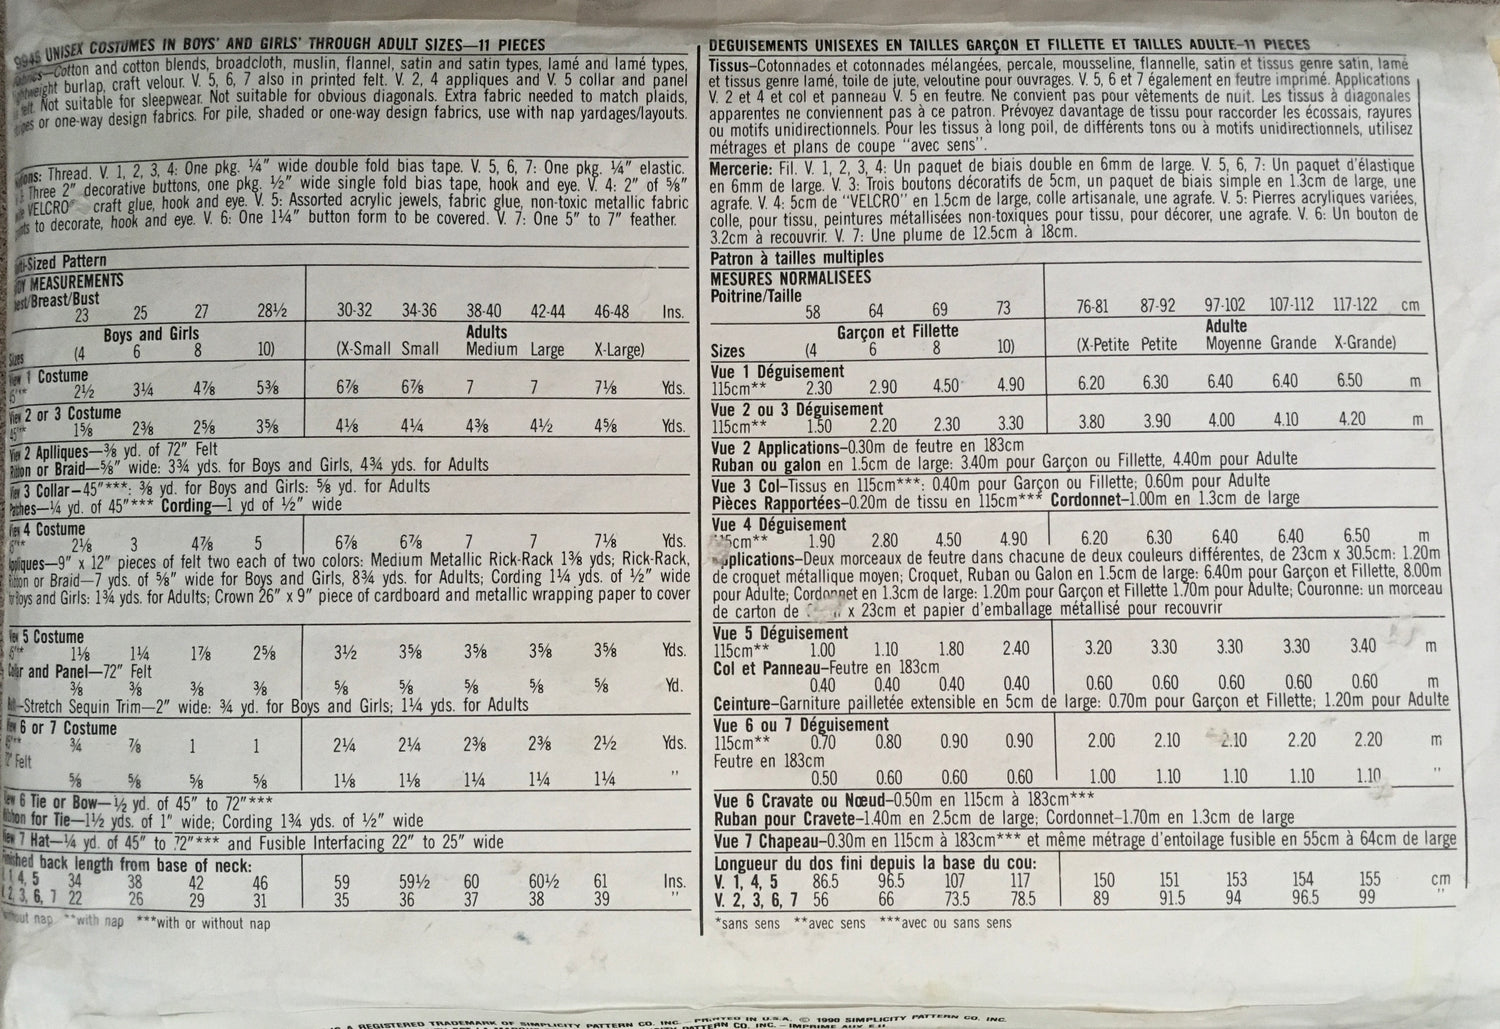 9945 UNISEX COSTUMES IN BOYS' AND GIRLS' THROUGH ADULT SIZES—11 PIECES
Cotton and cotton blends, broadcloth, muslin, flannel, satin and satin types, lamé and lamé types,
burlap, craft velour. V. 5, 6, 7 also in printed felt. V. 2, 4 appliques and V. 5 collar and panel
Not suitable for sleepwear. Not suitable for obvious diagonals. Extra fabric needed to match plaids,
or one-way design fabrics. For pile, shaded or one-way design fabrics, use with nap yardages/layouts.
Thread. V. 1, 2, 3, 4: One pkg. ¼" wide double fold bias tape. V. 5, 6, 7: One pkg. ¼" elastic.
Three 2" decorative buttons, one pkg. ½" wide single fold bias tape, hook and eye. V. 4: 2" of ⅝"
VELCRO craft glue, hook and eye. V. 5: Assorted acrylic jewels, fabric glue, non-toxic metallic fabric
to decorate, hook and eye. V. 6: One 1¼" button form to be covered. V. 7: One 5" to 7" feather.
-Sized Pattern
MEASUREMENTS
/Breast/Bust
23 25 27 28½ 30-32 34-36 38-40 42-44 46-48 Ins.
Boys and Girls Adults
Sizes (4 6 8 10) (X-Small Small Medium Large X-Large)
View 1 Costume
2½ 3¼ 4⅞ 5⅜ 6⅞ 6⅞ 7 7 7⅛ Yds.
View 2 or 3 Costume
1⅝ 2⅜ 2⅝ 3⅝ 4⅛ 4¼ 4⅜ 4½ 4⅝ Yds.
View 2 Aplliques—⅜ yd. of 72" Felt
Ribbon or Braid—⅝" wide: 3¾ yds. for Boys and Girls, 4¾ yds. for Adults
View 3 Collar—45"***: ⅜ yd. for Boys and Girls: ⅝ yd. for Adults
Patches—¼ yd. of 45"*** Cording—1 yd of ½" wide
View 4 Costume
2⅛ 3 4⅞ 5 6⅞ 6⅞ 7 7 7⅛ Yds.
Appliques—9" x 12" pieces of felt two each of two colors: Medium Metallic Rick-Rack 1⅜ yds; Rick-Rack,
Ribbon or Braid—7 yds. of ⅝" wide for Boys and Girls, 8¾ yds. for Adults; Cording 1¼ yds. of ½" wide
for Boys and Girls: 1¾ yds. for Adults; Crown 26" x 9" piece of cardboard and metallic wrapping paper to cover
View 5 Costume
1⅛ 1¼ 1⅞ 2⅝ 3½ 3⅝ 3⅝ 3⅝ 3⅝ Yds.
Collar and Panel—72" Felt
⅜ ⅜ ⅜ ⅜ ⅝ ⅝ ⅝ ⅝ ⅝ Yd.
—Stretch Sequin Trim—2" wide: ¾ yd. for Boys and Girls; 1¼ yds. for Adults
View 6 or 7 Costume
¾ ⅞ 1 1 2¼ 2¼ 2⅜ 2⅜ 2½ Yds.
Felt
⅝ ⅝ ⅝ ⅝ 1⅛ 1⅛ 1¼ 1¼ 1¼ "
View 6 Tie or Bow—½ yd. of 45" to 72"***
Ribbon for Tie—1½ yds. of 1" wide; Cording 1¾ yds. of ½" wide
View 7 Hat—¼ yd. of 45" to 72"*** and Fusible Interfacing 22" to 25" wide
Finished back length from base of neck:
1, 4, 5 34 38 42 46 59 59½ 60 60½ 61 Ins.
2, 3, 6, 7 22 26 29 31 35 36 37 38 39 "
without nap **with nap ***with or without nap
DEGUISEMENTS UNISEXES EN TAILLES GARÇON ET FILLETTE ET TAILLES ADULTE–11 PIECES
Tissus–Cotonnades et cotonnades mélangées, percale, mousseline, flannelle, satin et tissus genre satin, lamé
et tissus genre lamé, toile de jute, veloutine pour ouvrages. V. 5, 6 et 7 également en feutre imprimé. Applications
V. 2 et 4 et col et panneau V. 5 en feutre. Ne convient pas pour vêtements de nuit. Les tissus à diagonales
apparentes ne conviennent pas à ce patron. Prévoyez davantage de tissu pour raccorder les écossais, rayures
ou motifs unidirectionnels. Pour les tissus à long poil, de différents tons ou à motifs unidirectionnels, utilisez
métrages et plans de coupe "avec sens".
Mercerie: Fil. V. 1, 2, 3, 4: Un paquet de biais double en 6mm de large. V. 5, 6, 7: Un paquet d'élastique
en 6mm de large. V. 3: Trois boutons décoratifs de 5cm, un paquet de biais simple en 1.3cm de large, une
agrafe. V. 4: 5cm de "VELCRO" en 1.5cm de large, colle artisanale, une agrafe. V. 5: Pierres acryliques variées,
colle, pour tissu, peintures métallisées non-toxiques pour tissu, pour décorer, une agrafe. V. 6: Un bouton de
3.2cm à recouvrir. V. 7: Une plume de 12.5cm à 18cm.
Patron à tailles multiples
MESURES NORMALISEES
Poitrine/Taille
58 64 69 73 76-81 87-92 97-102 107-112 117-122 cm
Garçon et Fillette Adulte
Sizes (4 6 8 10) (X-Petite Petite Moyenne Grande X-Grande)
Vue 1 Déguisement
115cm** 2.30 2.90 4.50 4.90 6.20 6.30 6.40 6.40 6.50 m
Vue 2 ou 3 Déguisement
115cm** 1.50 2.20 2.30 3.30 3.80 3.90 4.00 4.10 4.20 m
Vue 2 Applications–0.30m de feutre en 183cm
Ruban ou galon en 1.5cm de large: 3.40m pour Garçon ou Fillette, 4.40m pour Adulte
Vue 3 Col–Tissus en 115cm***: 0.40m pour Garçon ou Fillette; 0.60m pour Adulte
Pièces Rapportées–0.20m de tissu en 115cm*** Cordonnet–1.00m en 1.3cm de large
Vue 4 Déguisement
115cm** 1.90 2.80 4.50 4.90 6.20 6.30 6.40 6.40 6.50 m
Applications–Deux morceaux de feutre dans chacune de deux couleurs différentes, de 23cm x 30.5cm: 1.20m
de croquet métallique moyen; Croquet, Ruban ou Galon en 1.5cm de large: 6.40m pour Garçon et Fillette, 8.00m
pour Adulte; Cordonnet en 1.3cm de large: 1.20m pour Garçon et Fillette 1.70m pour Adulte; Couronne: un morceau
de carton de x 23cm et papier d'emballage métallisé pour recouvrir
Vue 5 Déguisement
115cm** 1.00 1.10 1.80 2.40 3.20 3.30 3.30 3.30 3.40 m
Col et Panneau–Feutre en 183cm
0.40 0.40 0.40 0.40 0.60 0.60 0.60 0.60 0.60 m
Ceinture–Garniture pailletée extensible en 5cm de large: 0.70m pour Garçon et Fillette; 1.20m pour Adulte
Vue 6 ou 7 Déguisement
115cm** 0.70 0.80 0.90 0.90 2.00 2.10 2.10 2.20 2.20 m
Feutre en 183cm
0.50 0.60 0.60 0.60 1.00 1.10 1.10 1.10 1.10 "
Vue 6 Cravate ou Nœud–0.50m en 115cm à 183cm***
Ruban pour Cravete–1.40m en 2.5cm de large; Cordonnet–1.70m en 1.3cm de large
Vue 7 Chapeau–0.30m en 115cm à 183cm*** et même métrage d'entoilage fusible en 55cm à 64cm de large
Longueur du dos fini depuis la base du cou:
V. 1, 4, 5 86.5 96.5 107 117 150 151 153 154 155 cm
V. 2, 3, 6, 7 56 66 73.5 78.5 89 91.5 94 96.5 99 "
*sans sens **avec sens ***avec ou sans sens
A REGISTERED TRADEMARK OF SIMPLICITY PATTERN CO. INC. PRINTED IN U.S.A. © 1990 SIMPLICITY PATTERN CO. INC.
PATTERN CO. INC. – IMPRIME AUX E.U.